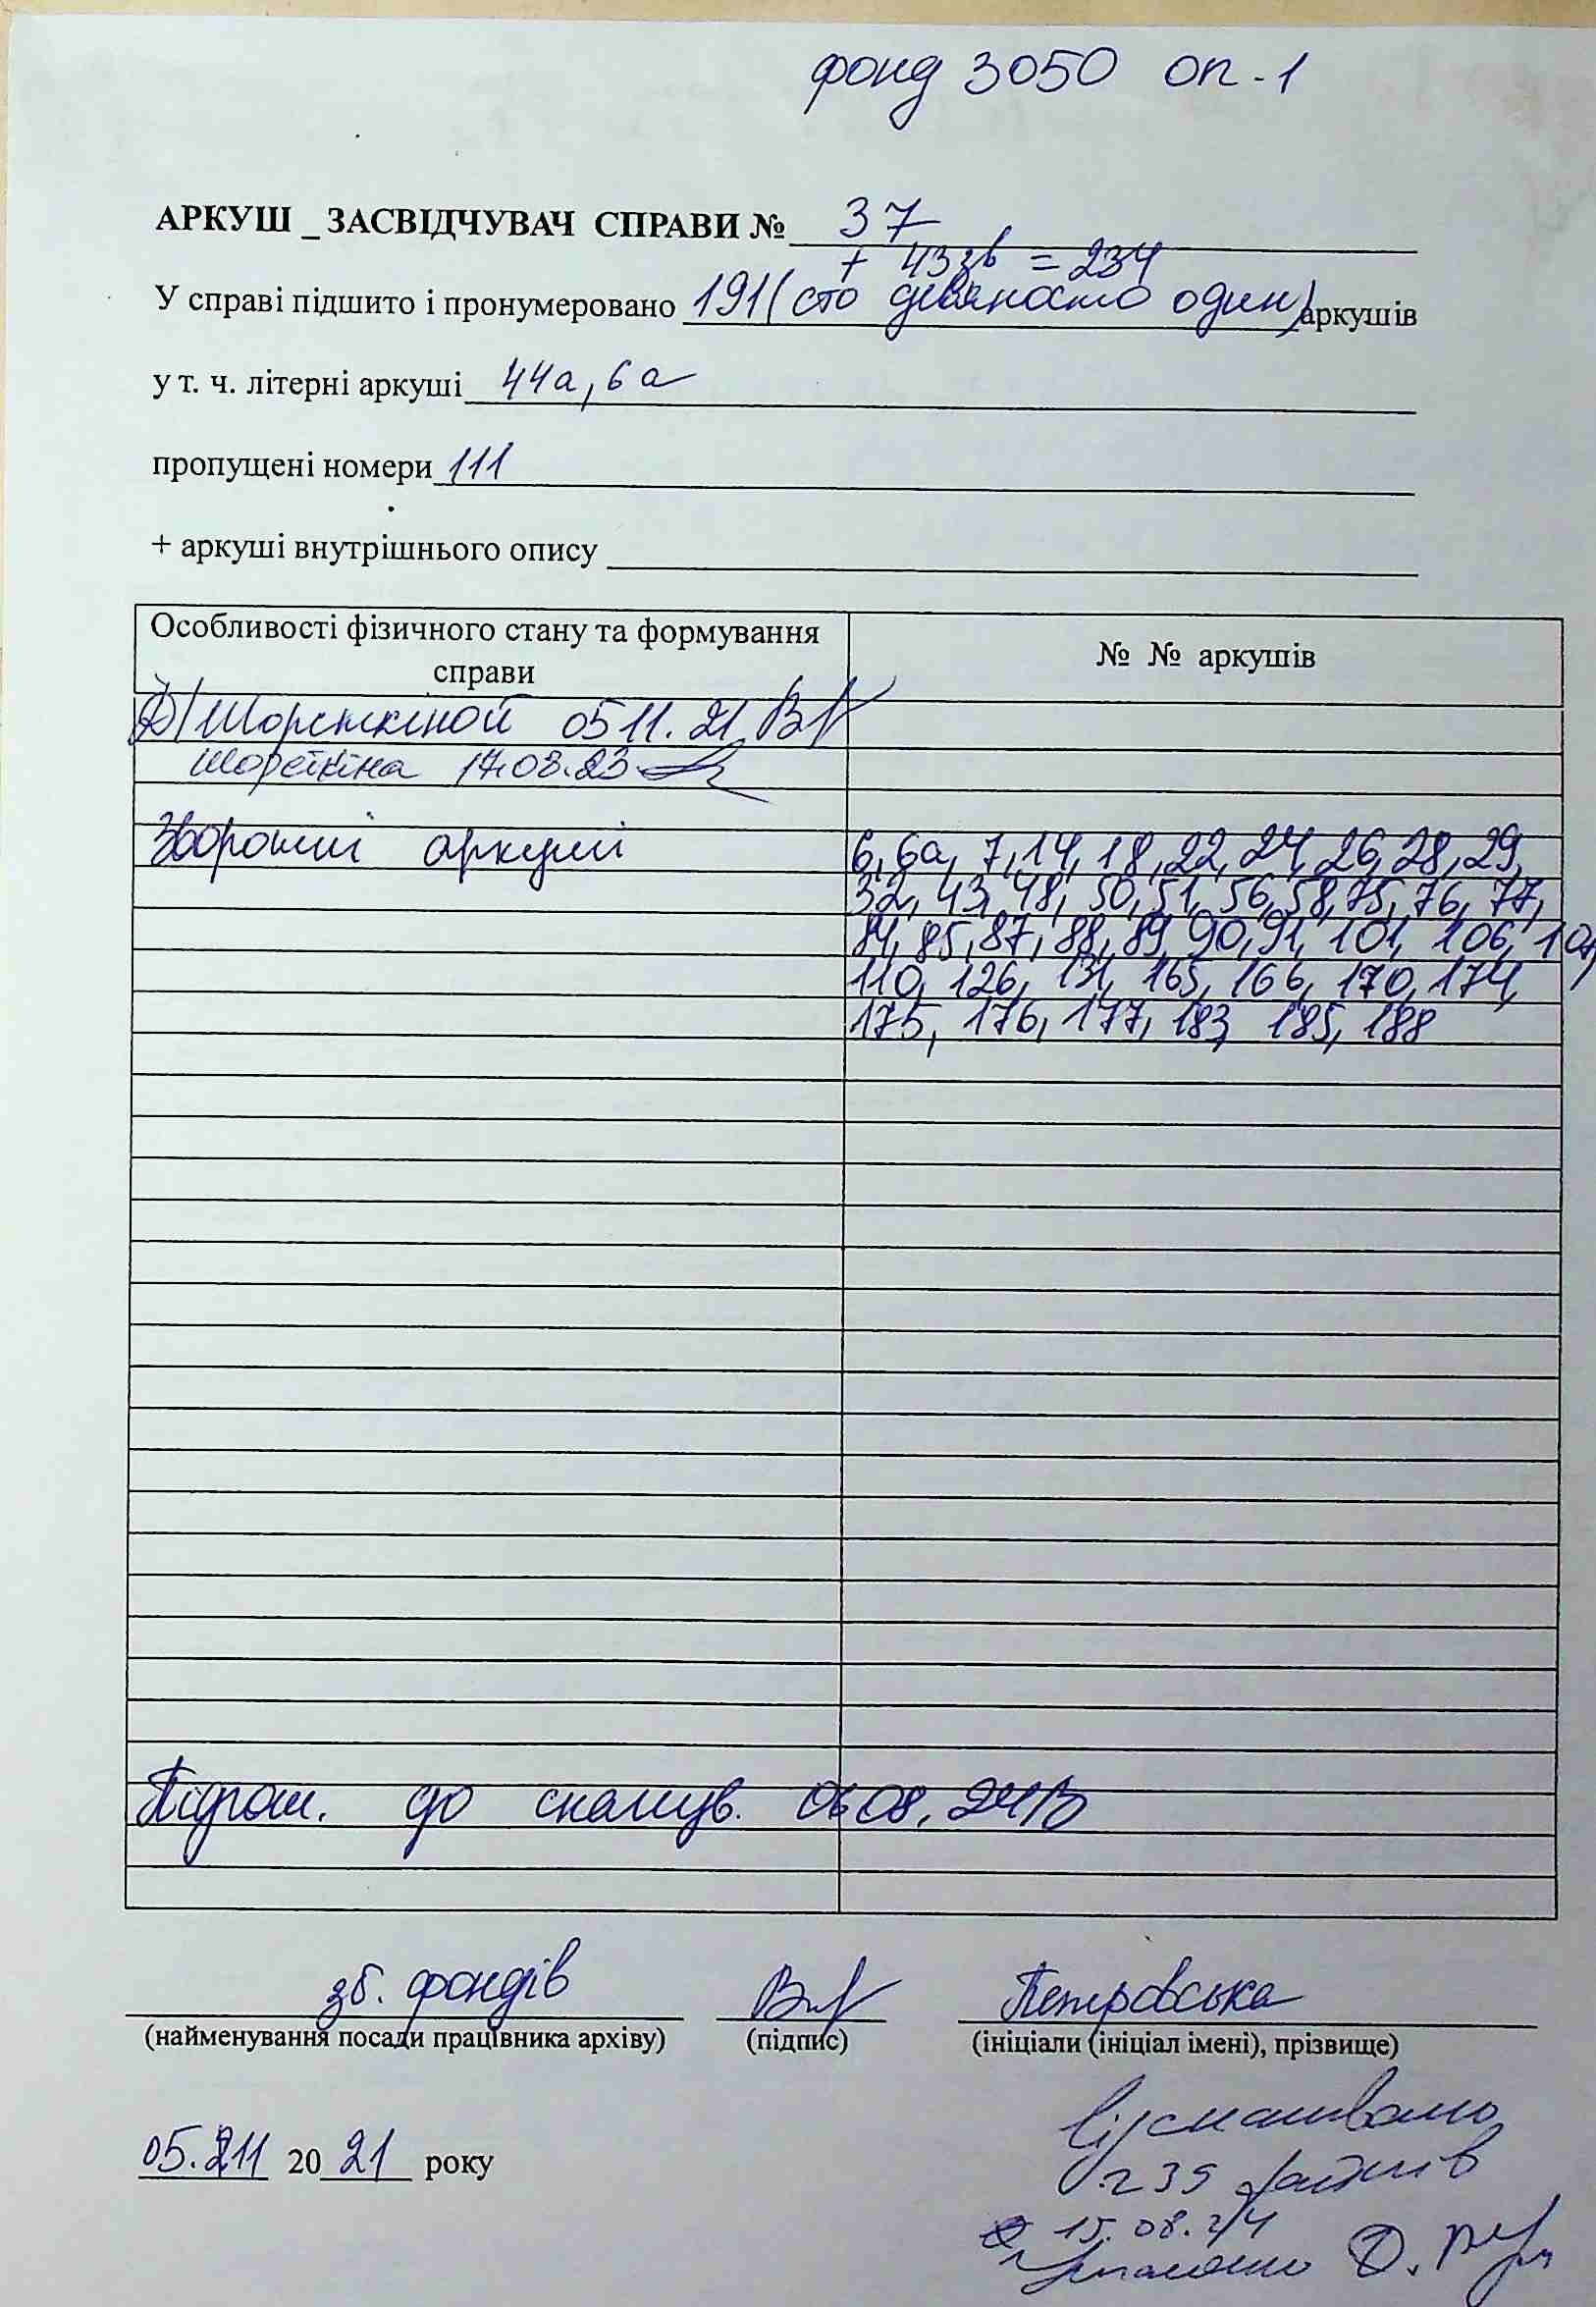 фонд 3050 оп-1
АРКУШ _ ЗАСВІДЧУВАЧ СПРАВИ № 37
+ 43 зв = 234
У справі підшито і пронумеровано 191 (сто девяносто один) аркушів
у т. ч. літерні аркуші 44а, 6а
пропущені номери 111
+ аркуші внутрішнього опису
Особливості фізичного стану та формування
справи
№ № аркушів
05 11. 21
17.08.23
Зворотні аркуші
6, 6а, 7, 14, 18, 22, 24, 26, 28, 29,
32, 43, 48, 50, 51, 56, 58, 75, 76, 77,
84, 85, 87, 88, 89, 90, 91, 101, 106,
110, 126, 131, 165, 166, 170, 174,
175, 176, 177, 183, 185, 188
до сканув. 06 08. 24
зб. фондів Петровська
(найменування посади працівника архіву) (підпис) (ініціали (ініціал імені), прізвище)
05. 11 2021 року
Відскановано
235 файлів
15.08.24